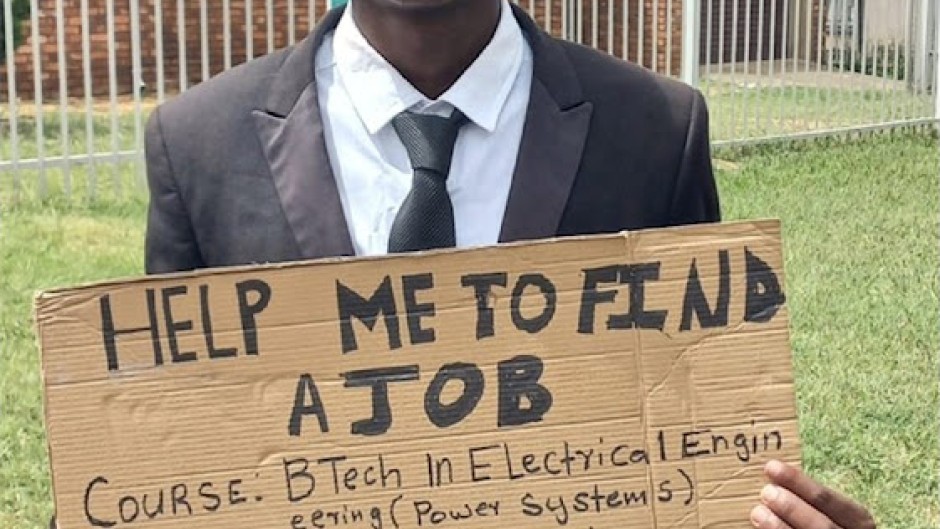 HELP ME TO FIND
A JOB
COURSE: BTech In Electrical Engin
eering (Power Systems)